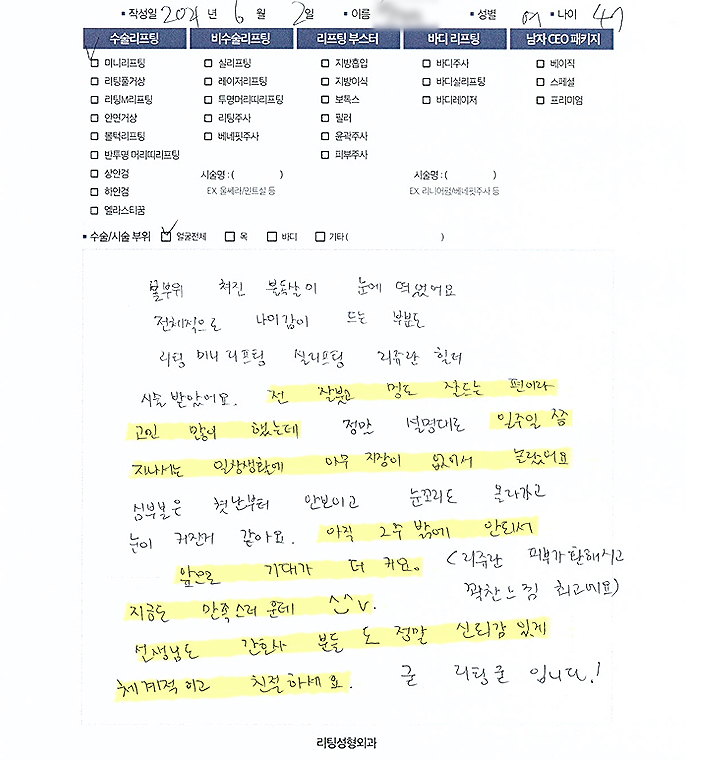 ▪ 작성일 2021 년 6 월 2일 ▪ 이름 ▪ 성별 여 ▪ 나이 47
수술리프팅 비수술리프팅 리프팅 부스터 바디 리프팅 남자 CEO 패키지
미니리프팅 실리프팅 지방흡입 바디주사 베이직
리팅풀거상 레이저리프팅 지방이식 바디실리프팅 스페셜
리팅M리프팅 투명머리띠리프팅 보톡스 바디레이저 프리미엄
안면거상 리팅주사 필러
볼턱리프팅 베네핏주사 윤곽주사
반투명 머리띠리프팅 피부주사
상안검 시술명 : ( ) 시술명 : ( )
하안검 EX. 울쎄라/민트실 등 EX. 리니어펌/베네핏주사 등
엘라스티꿈
▪ 수술/시술 부위 얼굴전체 목 바디 기타 ( )
볼부위 쳐진 불독살이 눈에 띄었어요
전체적으로 나이감이 드는 부분도
리팅 미니리프팅 실리프팅 리쥬란 힐러
시술 받았어요. 전 잘붓고 멍도 잘드는 편이라
고민 많이 했는데 정말 설명대로 일주일 쯤
지나서는 일상생활에 아무 지장이 없어서 놀랐어요
심부볼은 첫날부터 안보이고 눈꼬리도 올라가고
눈이 커진거 같아요. 아직 2주 밖에 안되서
앞으로 기대가 더 커요. (리쥬란 피부가탄해지고
꽉찬느낌 최고에요)
지금도 만족스러운데 ^^v.
선생님도 간호사 분들도 정말 신뢰감 있게
체계적이고 친절하세요. 굳 리팅굳 입니다!
리팅성형외과